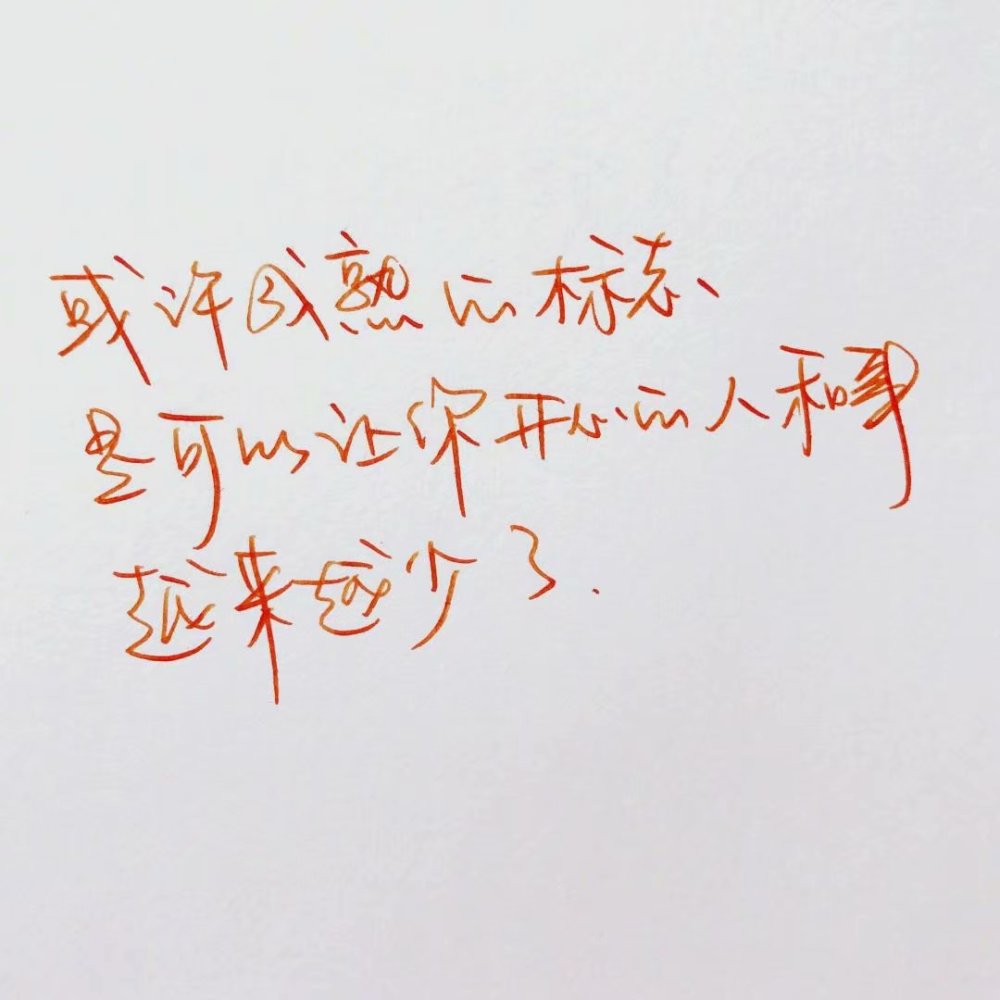 或许成熟的标志、
是可以让你开心的人和事
越来越少了.